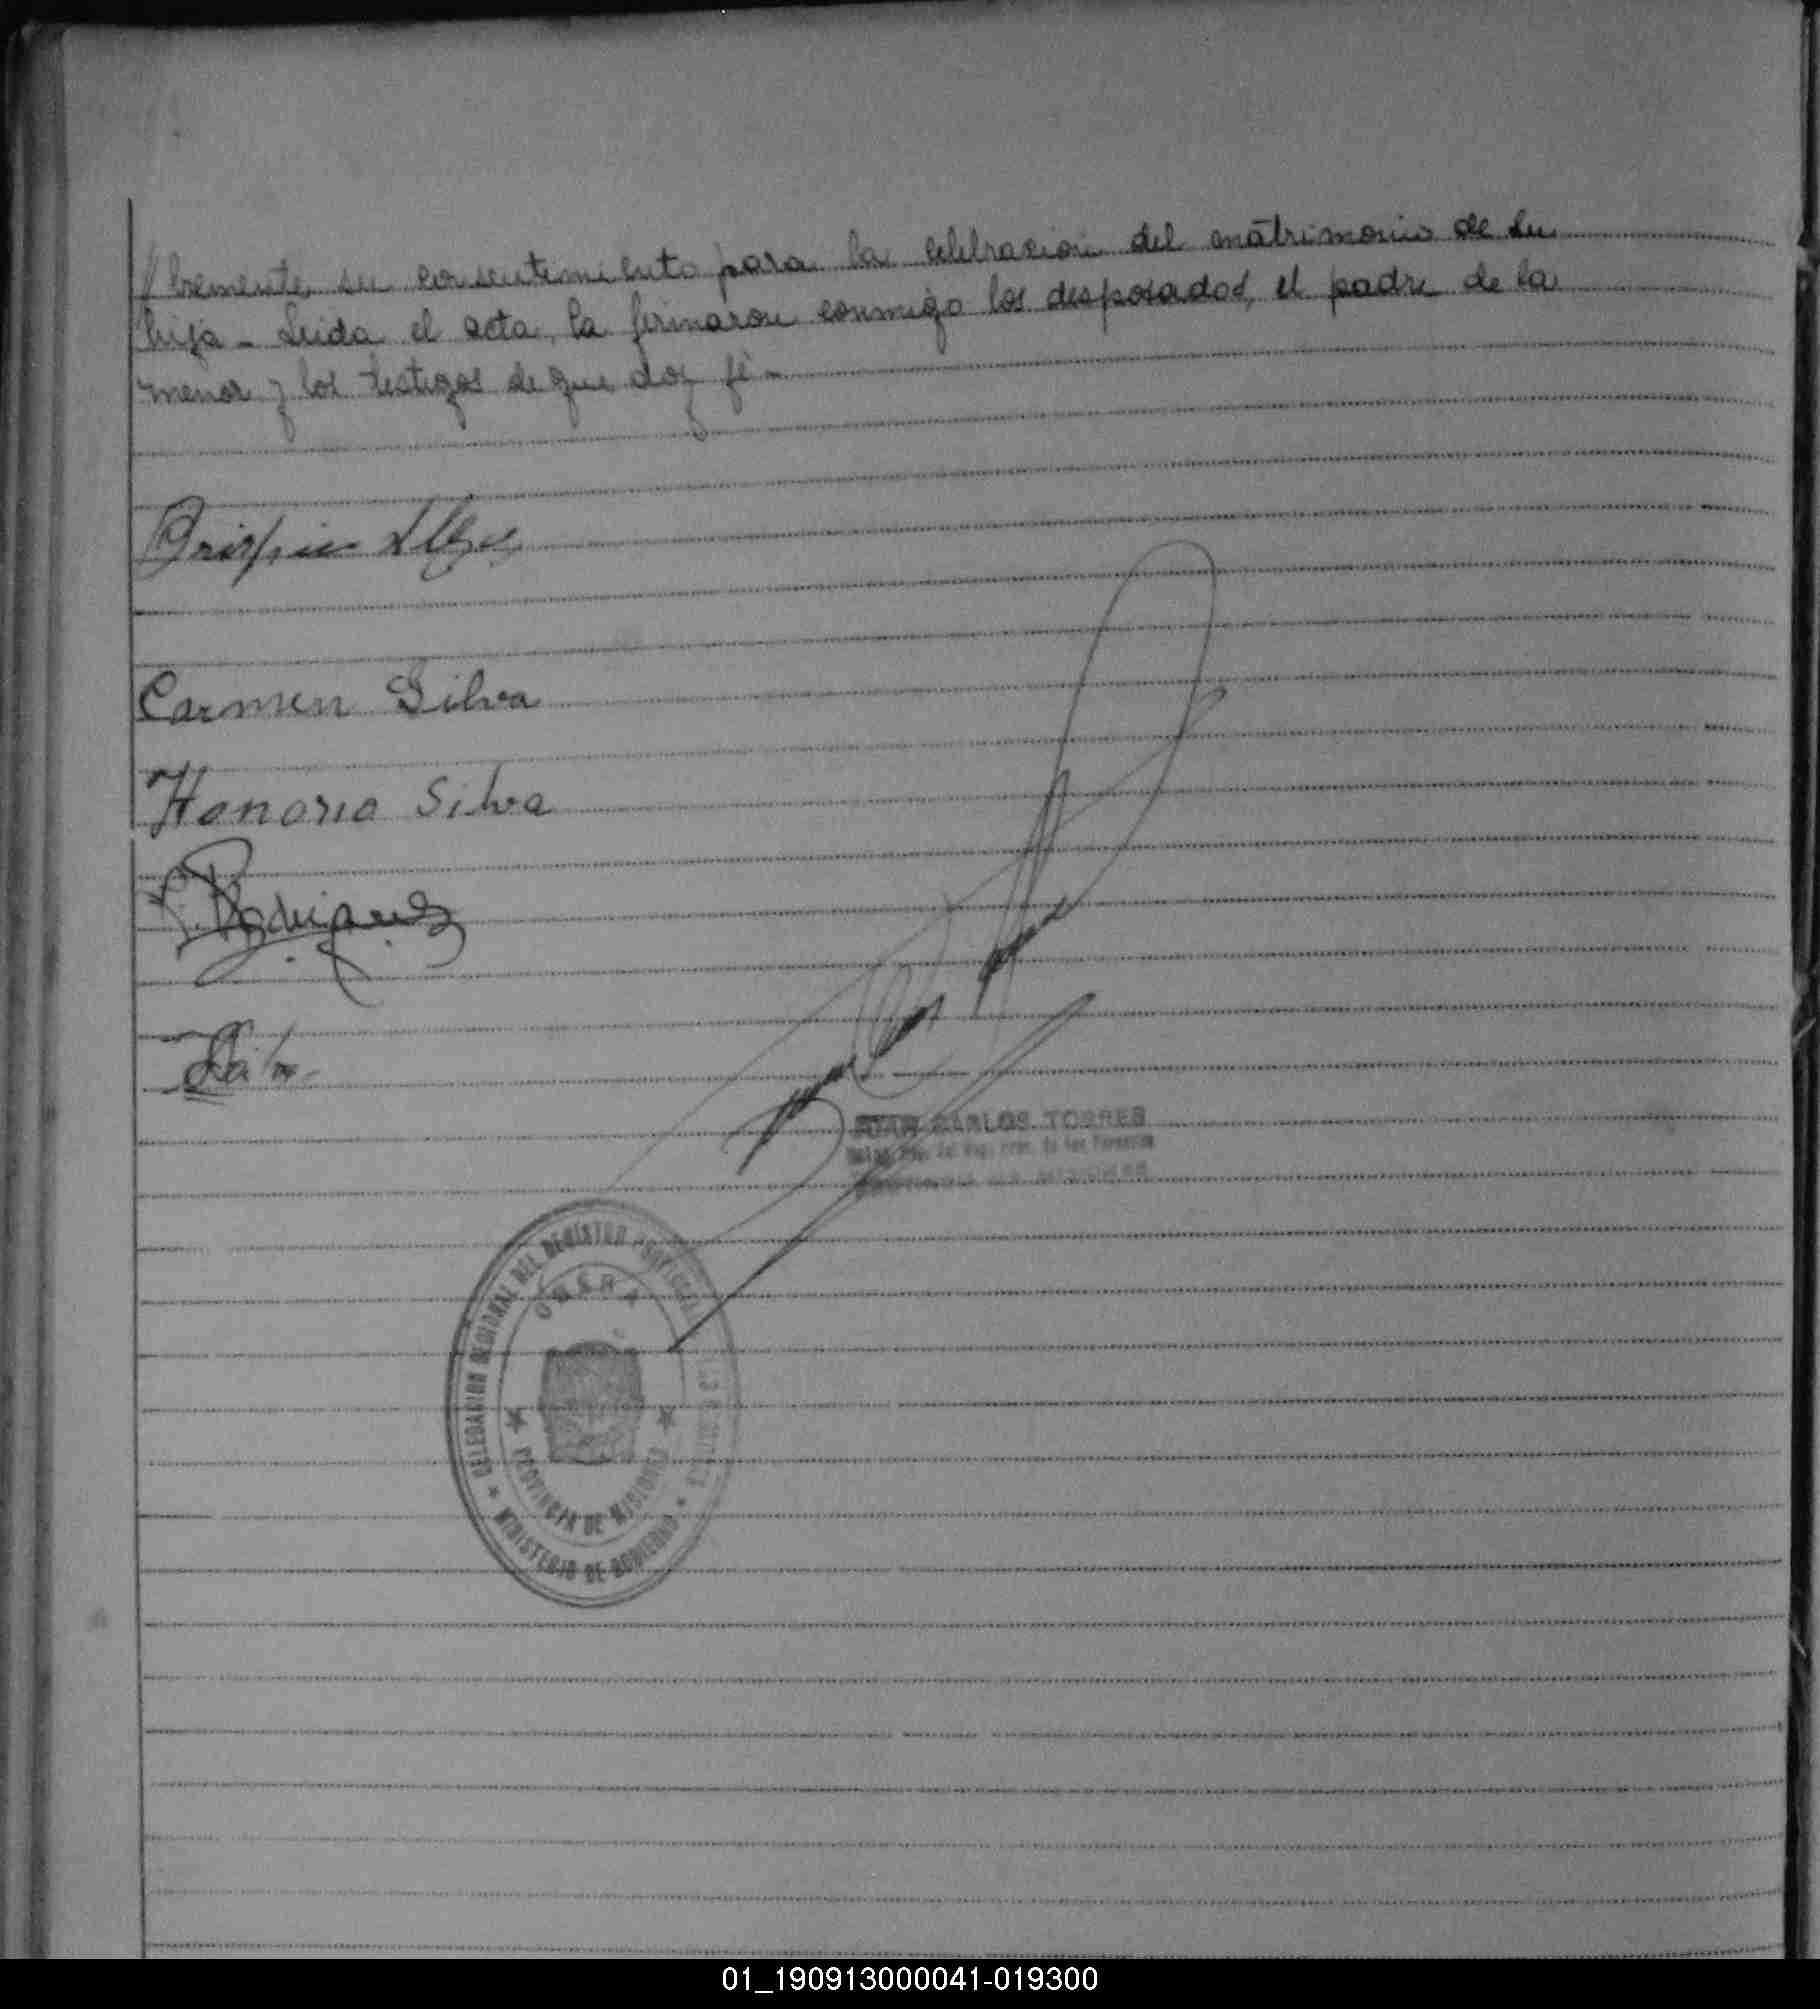 //bremente su consentimiento para la celebracion del matrimonio de su
hija - Leida el acta, la firmaron conmigo los desposados, el padre de la
menor y los testigos de que doy fé -
Carmen Silva
Honorio Silva
Rodriguez
JUAN CARLOS TORRES
DELEGACION REGIONAL DEL REGISTRO PROVINCIAL DE LAS PERSONAS
OBERA
PROVINCIA DE MISIONES
MINISTERIO DE GOBIERNO
01_190913000041-019300